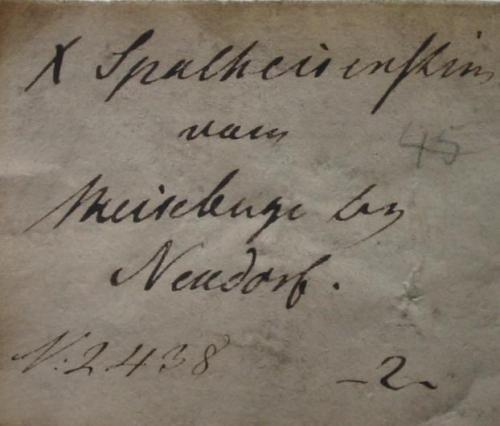 X Spatheisenstein
vom
45
Meiseberge bey
Neudorf.
N. 2438
-2-